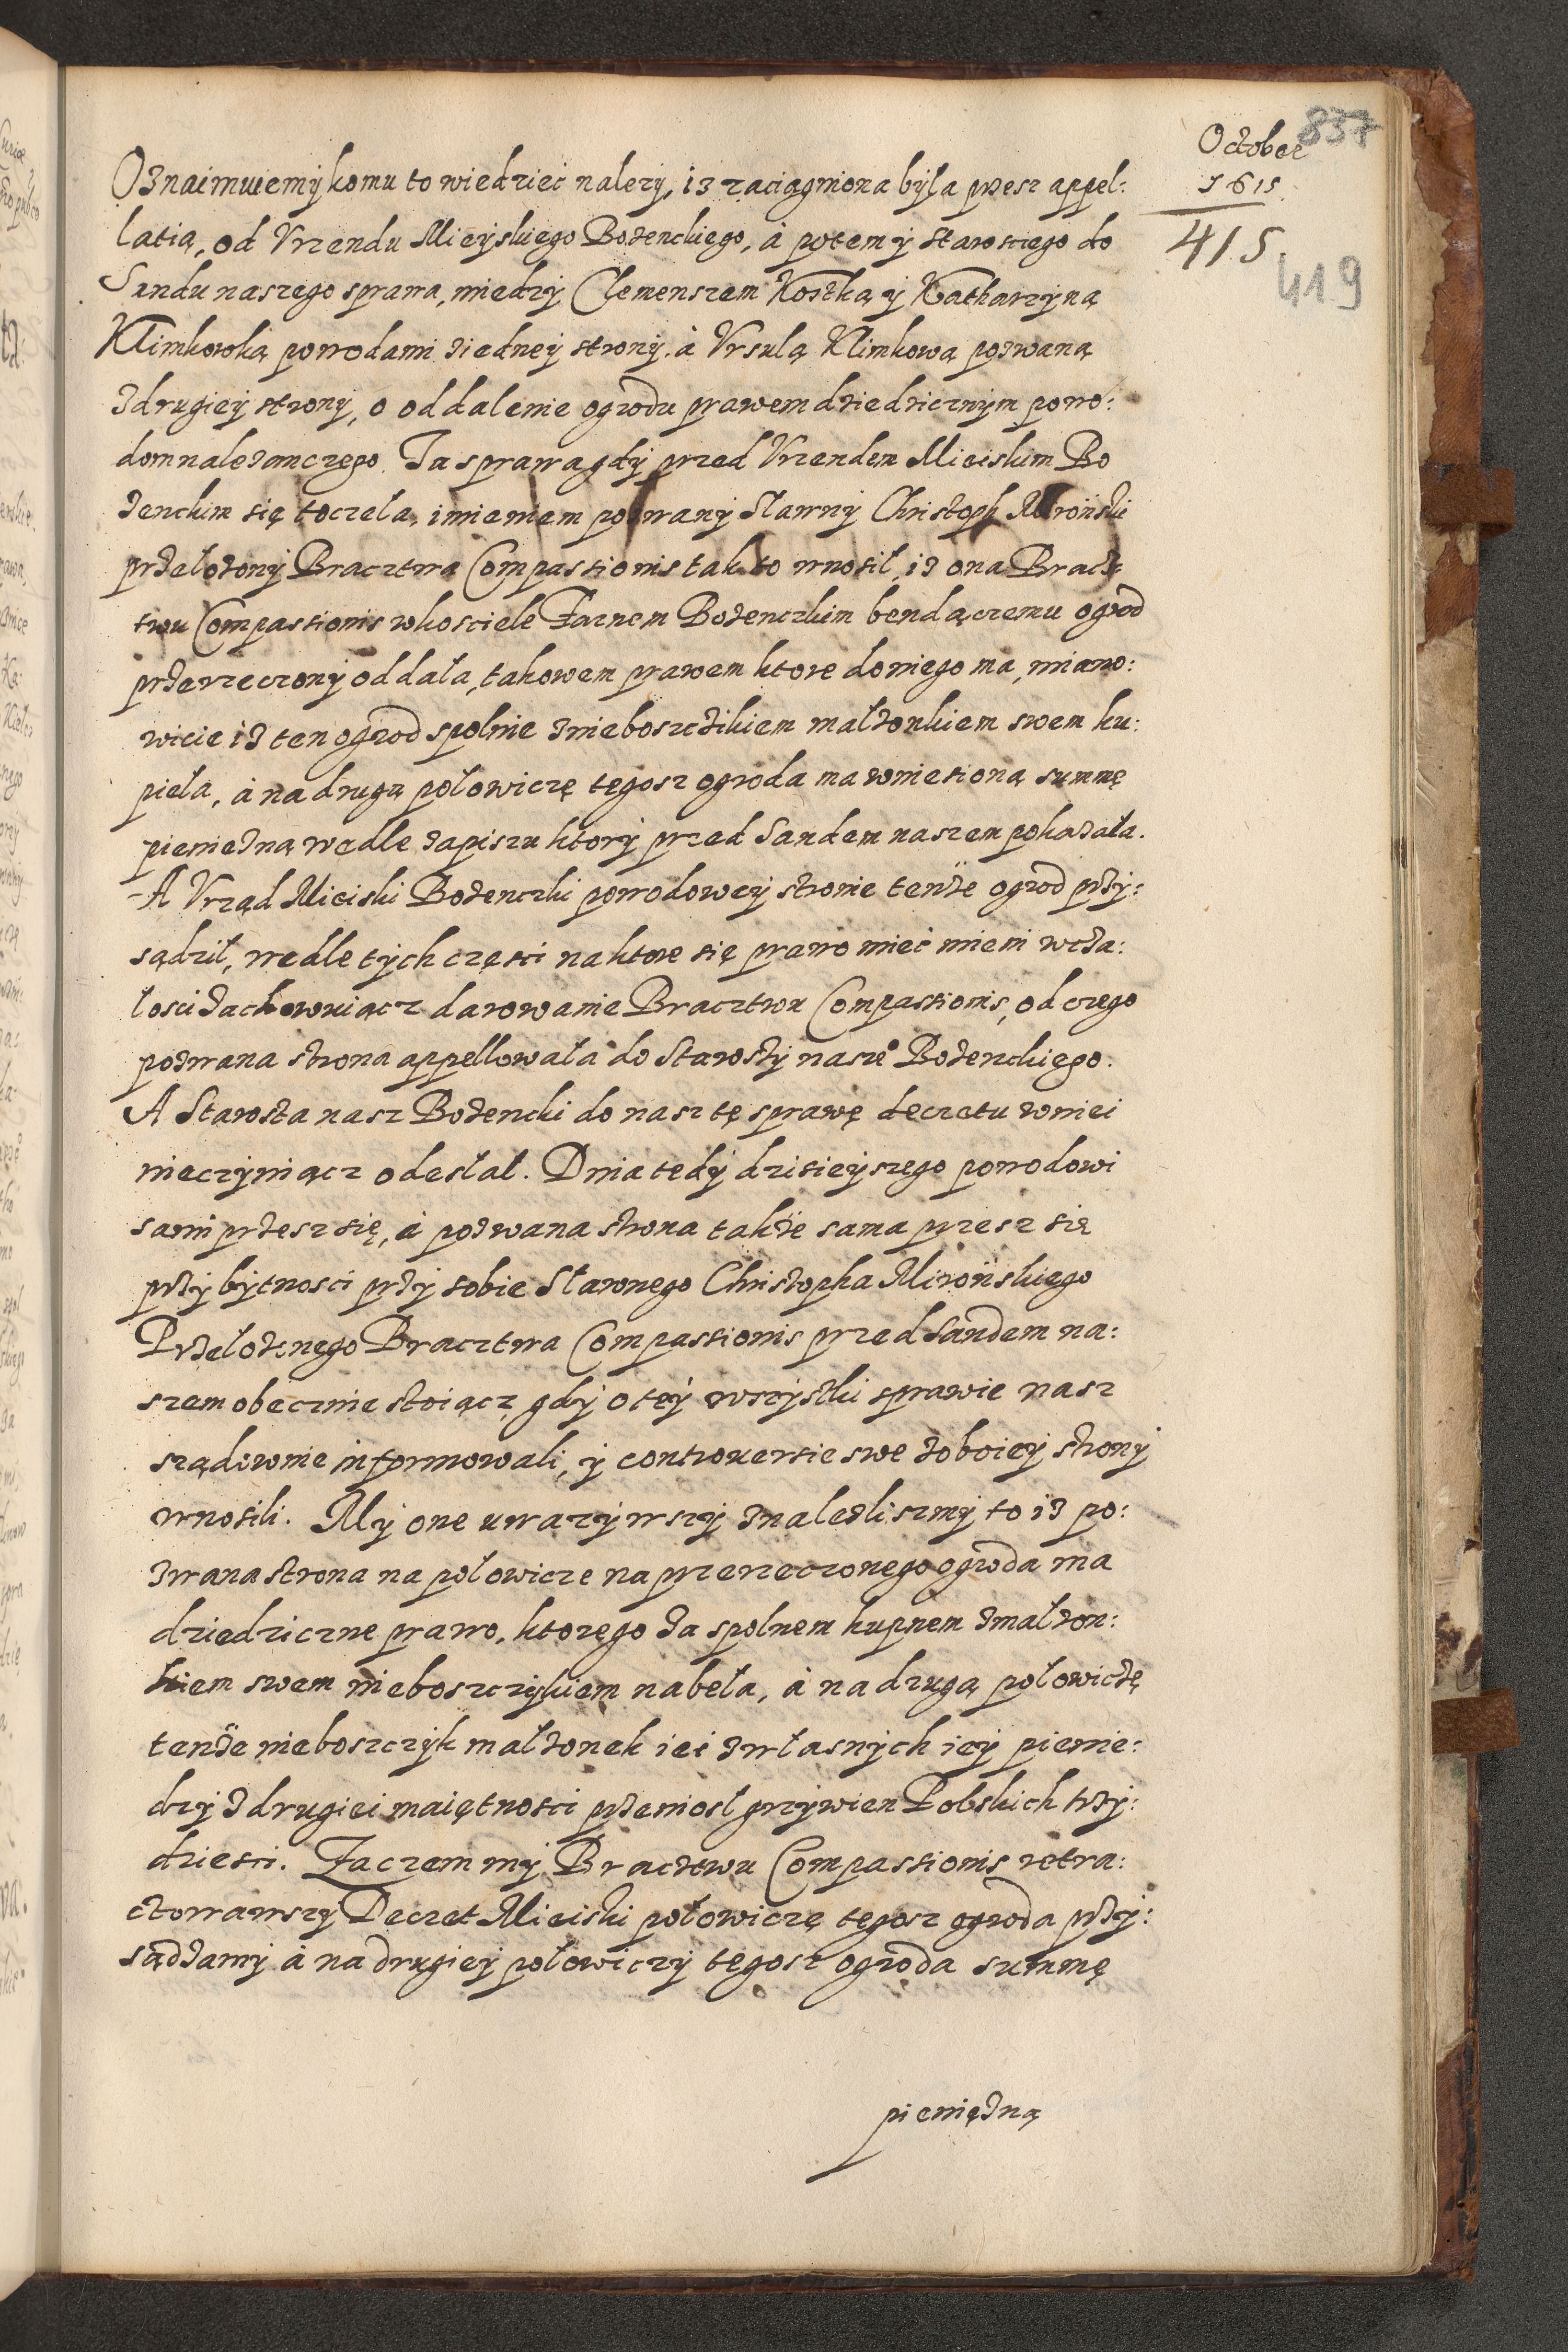 837
October
1615
415
419
Oznaimuiemÿ komu to wiedzieć nalezy, iz zaciągniona była przesz appel:
latią, od Vrzendu Mieyskiego Bozenckiego, à potem ÿ starosciego do
Sundu naszego sprawa, miedzy Clemenszem Kostką y Katharzÿną
Klimkowską powodami z iedney stronÿ, à Vrsulą Klimkową pozwaną
z drugieÿ stronÿ, o oddalenie ogrodu prawem dziedzicznÿm powo:
dom nalezanczego. Ta sprawa gdÿ przed Vrzendem Mieiskim Bo
zenckim się toczela, imieniem pozwanÿ Slawnÿ Christoph Miroński
przelozonÿ Bracztwa Compassionis tak to wnosił, iz ona Bracz
twu Compassionis w kosciele Farnem Bozenczkim bendączemu ogrod
przerzeczonÿ oddała, takowem prawem ktore do niego ma, miano:
wicie iz ten ogrod spolnie z nieboszczikiem malzonkiem swem ku:
pieła, à na drugą połowiczę tegosz ogroda ma wniesioną summę
pieniezną wedle zapiszu ktorÿ przed Sandem naszem pokazała.
A Vrząd Mieiski Bozenczki powodoweÿ stronie tenze ogrod przÿ:
sądził, wedle tÿch części na ktore się prawo mieć mieni w cza:
łosci zachowuiącz darowanie Bracztwu Compassionis, od czego
pozwana strona appellowała do Starostÿ nasze° Bozenckiego.
A Starosta nasz Bozencki do nasz tę sprawę decretu w niei
nieczÿniącz odesłał. Dnia tedÿ dzisieÿszego powodowi
sami przesz się, à pozwana strona takze sama przesz się
przÿ bÿtnosci przÿ sobie Sławnego Christopha Mirońskiego
Przelozonego Bracztwa Compassionis przed Sandem na:
szem obecznie stoiącz, gdÿ o teÿ wszÿstki sprawie nasz
sządownie informowali, ÿ controuersie swe z oboieÿ stronÿ
wnosili. Mÿ one uwazÿwszÿ znalezliszmÿ to iz po:
zwana strona na połowicze na przerzeczonego ogroda ma
dziedziczne prawo, ktorego za spolnem kupnem z malzon:
kiem swem nieboszczÿkiem nabeła, à na drugą połowiczę
tenze nieboszczÿk małzonek iei z własnÿch ieÿ pienie:
dzÿ z drugiei maiętnosci przeniosł grzÿwien Polskich trzÿ:
dziesci. Zaczem mÿ Bracztwu Compassionis retra:
ctowawszÿ Decret Mieiski połowiczę tegosz ogroda przÿ:
sądzamÿ à na drugieÿ połowiczÿ tegosz ogroda summę
pieniężną